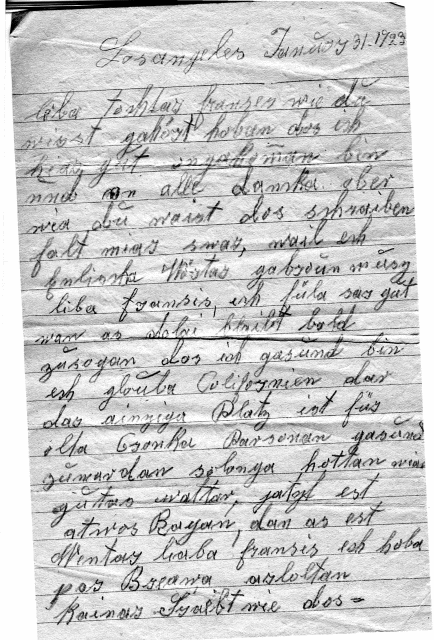 Losangeles January 31. 1923
Liba tochtar franses wie du
wirst gahöst hoban dos ich
hiar gut angakoman bin
und an alle danka. ober
wie du waist dos schraiben
falt miar swar, wail ich
Englisha Wörtar musz
liba fransis, ich füla sar gut
wan as dobei bleibt bold
zusogan dos ich gasund bin
ich glouba Californien dar
das ainziga Platz ist für
olta Cronka Parsonan gasund
zuwardan solonga hottan wiar
gutas wattar, jatzt ist
atwos Ragan, dan as ist
Wentar liaba fransis ich hoba
por Breawa arholtan
kainar Szaibt wie dos=